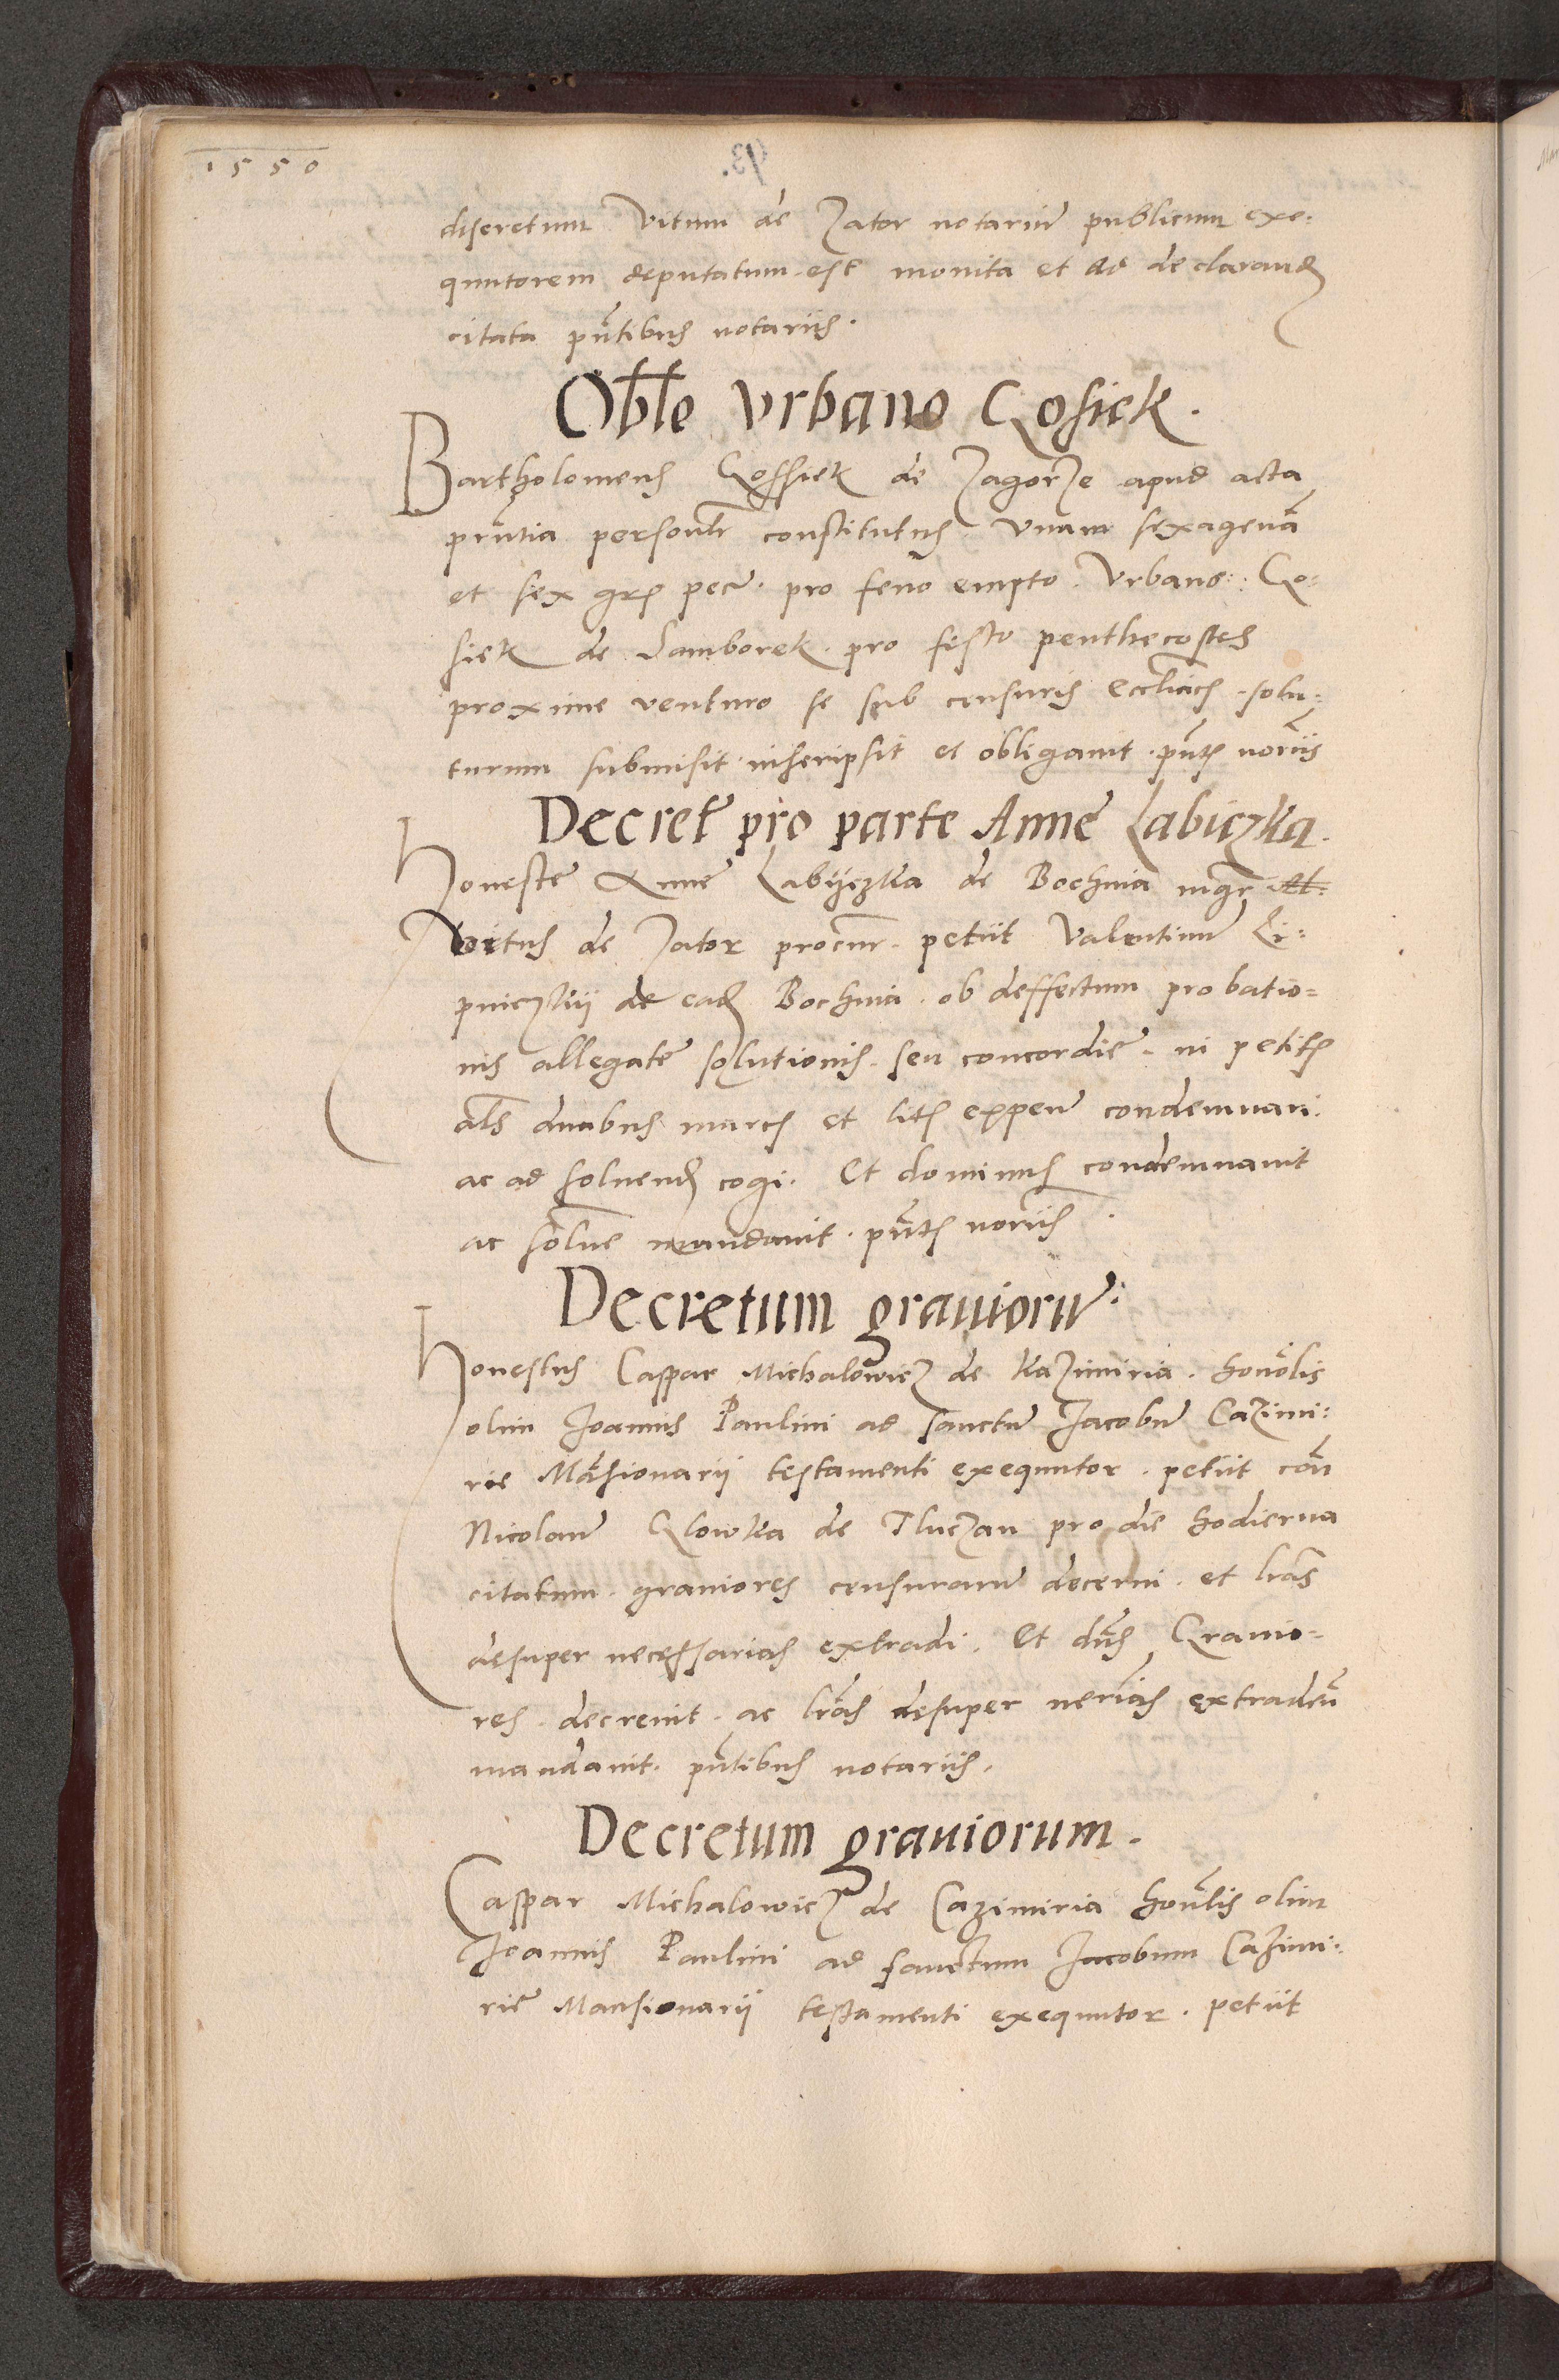 1550
discretum Vitum de Zator notariũ publicum exe:
quutorem deputatum est monita et ad declarand
citata pñtibus notariis.
Obłe Vrbano Gosiek.
Bartholomeus Gossiek de Zagorze apud acta
prñtia persoñlr constitutus Vnam sexagenã
et sex grs pecũ. pro feno empto. Vrbano: Go:
siek de Samborek. pro festo penthecostes
proxime venturo se sub censuris eccliãcis solu:
turum submisit inscripsit et obligauit. pñt norĩis
Decret̃ pro parte Anne Labiczka.
Honeste Anne Labyczka de Bochnia mgr
Vitus de Zator procur. petiit Valentinũ Li:
pniczkij de ead Bochnia. ob deffectum probatio=
nis allegate solutionis. seu concordie. in petitis
als duabus marcis et litis expens condemnari.
ac ad soluend cogi. Et dominus condemnauit
ac soluẽ mandauit. pñt norĩis.
Decretum grauiorũ.
Honestus Caspar Michalowicz de Kazimiria. honõlis
olim Joannis Paulini ad sanctũ Jacobũ Cazimi:
rie Mãsionarij testamenti exequutor. petiit cõn
Nicolaũ Glowka de Tluczan pro die hodierna
citatum. grauiores censurarũ decerni. et lrãs
desuper necessarias extradi. Et dñs Grauio=
res. decreuit. ac lrãs desuper nerĩas extradeñ
mandauit. pñtibus notariis.
Decretum grauiorum.
Caspar Michalowicz de Cazimiria honõlis olim
Joannis Paulini ad sanctum Jacobum Cazimi:
rie Mansionarij testamenti exequutor. petiit